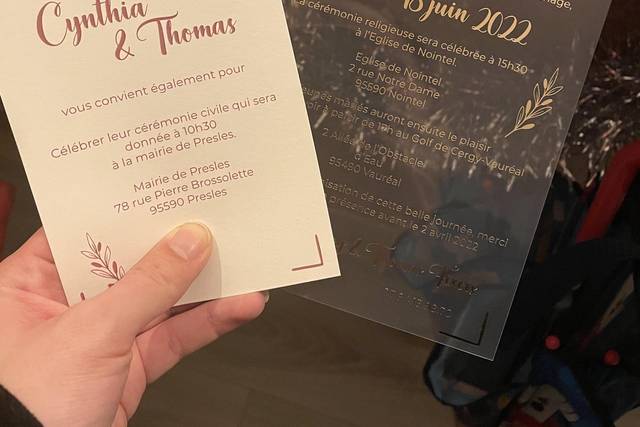 Cynthia
& Thomas
vous convient également pour
Célébrer leur cérémonie civile qui sera
donnée à 10h30
à la mairie de Presles.
Mairie de Presles
78 rue Pierre Brossolette
95590 Presles
15 juin 2022
La cérémonie religieuse sera célébrée à 15h30
à l'Eglise de Nointel.
Eglise de Nointel
2 rue Notre Dame
95590 Nointel
mariés auront ensuite le plaisir
à partir de 17h au Golf de Cergy-Vauréal
2 Allée de l'Obstacle
d'Eau
95490 Vauréal
isation de cette belle journée, merci
présence avant le 2 avril 2022